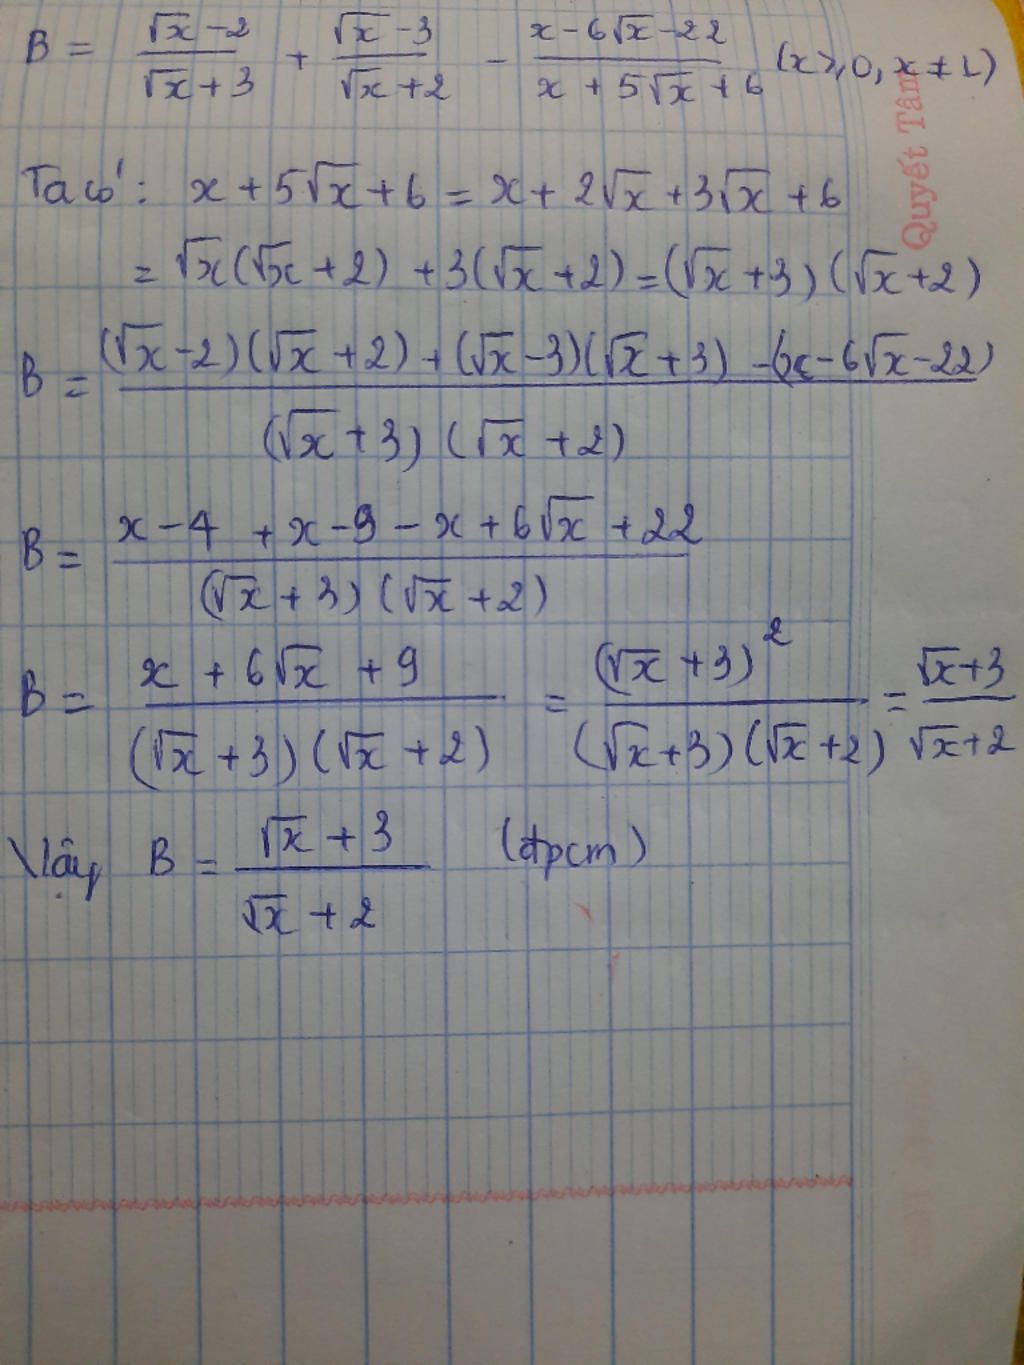 B = (√x - 2)/(√x + 3) + (√x - 3)/(√x + 2) - (x - 6√x - 22)/(x + 5√x + 6) (x ≥ 0, x ≠ 1)
Ta có: x + 5√x + 6 = x + 2√x + 3√x + 6
= √x(√x + 2) + 3(√x + 2) = (√x + 3)(√x + 2)
B = ((√x - 2)(√x + 2) + (√x - 3)(√x + 3) - (x - 6√x - 22))/((√x + 3)(√x + 2))
B = (x - 4 + x - 9 - x + 6√x + 22)/((√x + 3)(√x + 2))
B = (x + 6√x + 9)/((√x + 3)(√x + 2)) = (√x + 3)²/((√x + 3)(√x + 2)) = (√x + 3)/(√x + 2)
Vậy B = (√x + 3)/(√x + 2) (đpcm)
Quyết Tâm